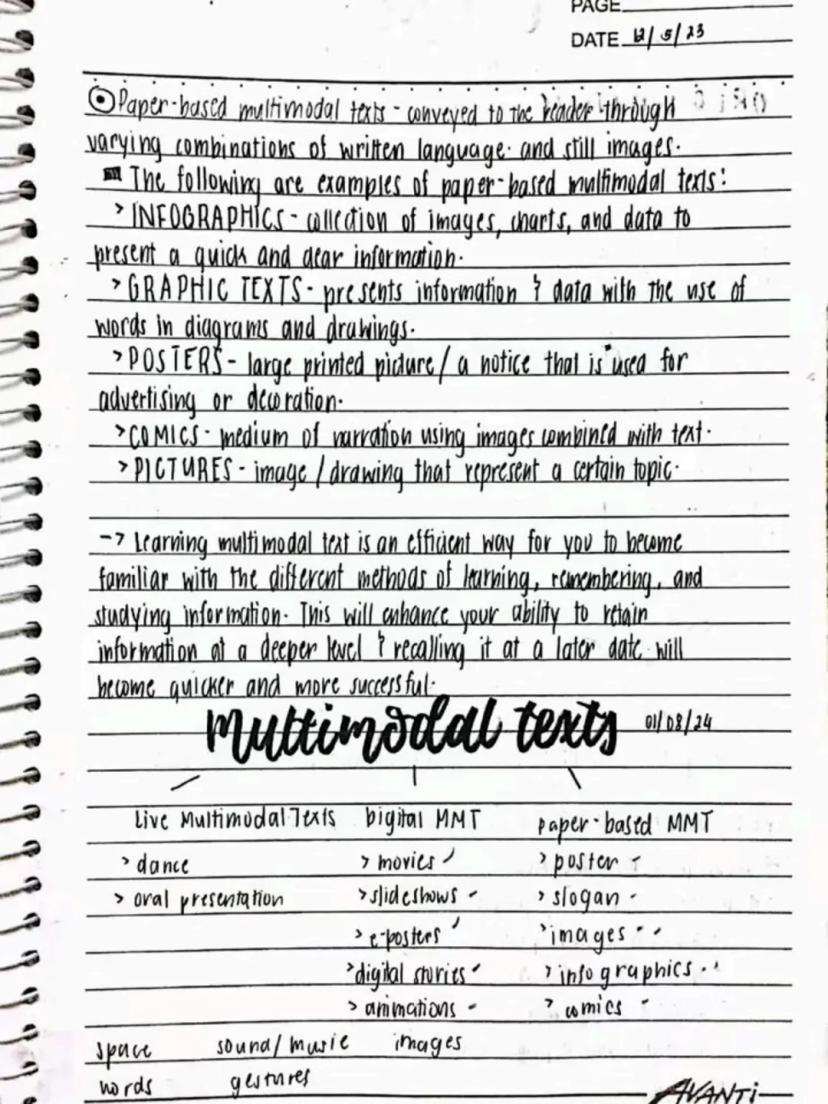 PAGE
DATE 12/5/23
Paper-based multimodal texts - conveyed to the reader through
varying combinations of written language and still images.
The following are examples of paper-based multimodal texts:
> INFOGRAPHICS - collection of images, charts, and data to
present a quick and clear information.
> GRAPHIC TEXTS - presents information & data with the use of
words in diagrams and drawings.
> POSTERS - large printed picture / a notice that is used for
advertising or decoration.
> COMICS - medium of narration using images combined with text.
> PICTURES - image / drawing that represent a certain topic.
-> Learning multimodal text is an efficient way for you to become
familiar with the different methods of learning, remembering, and
studying information. This will enhance your ability to retain
information at a deeper level & recalling it at a later date will
become quicker and more successful.
Multimodal texts 01/08/24
Live Multimodal Texts Digital MMT paper-based MMT
> dance > movies > poster
> oral presentation > slideshows > slogan
> e-posters > images
> digital stories > infographics
> animations > comics
space sound/music images
words gestures
AVANTi